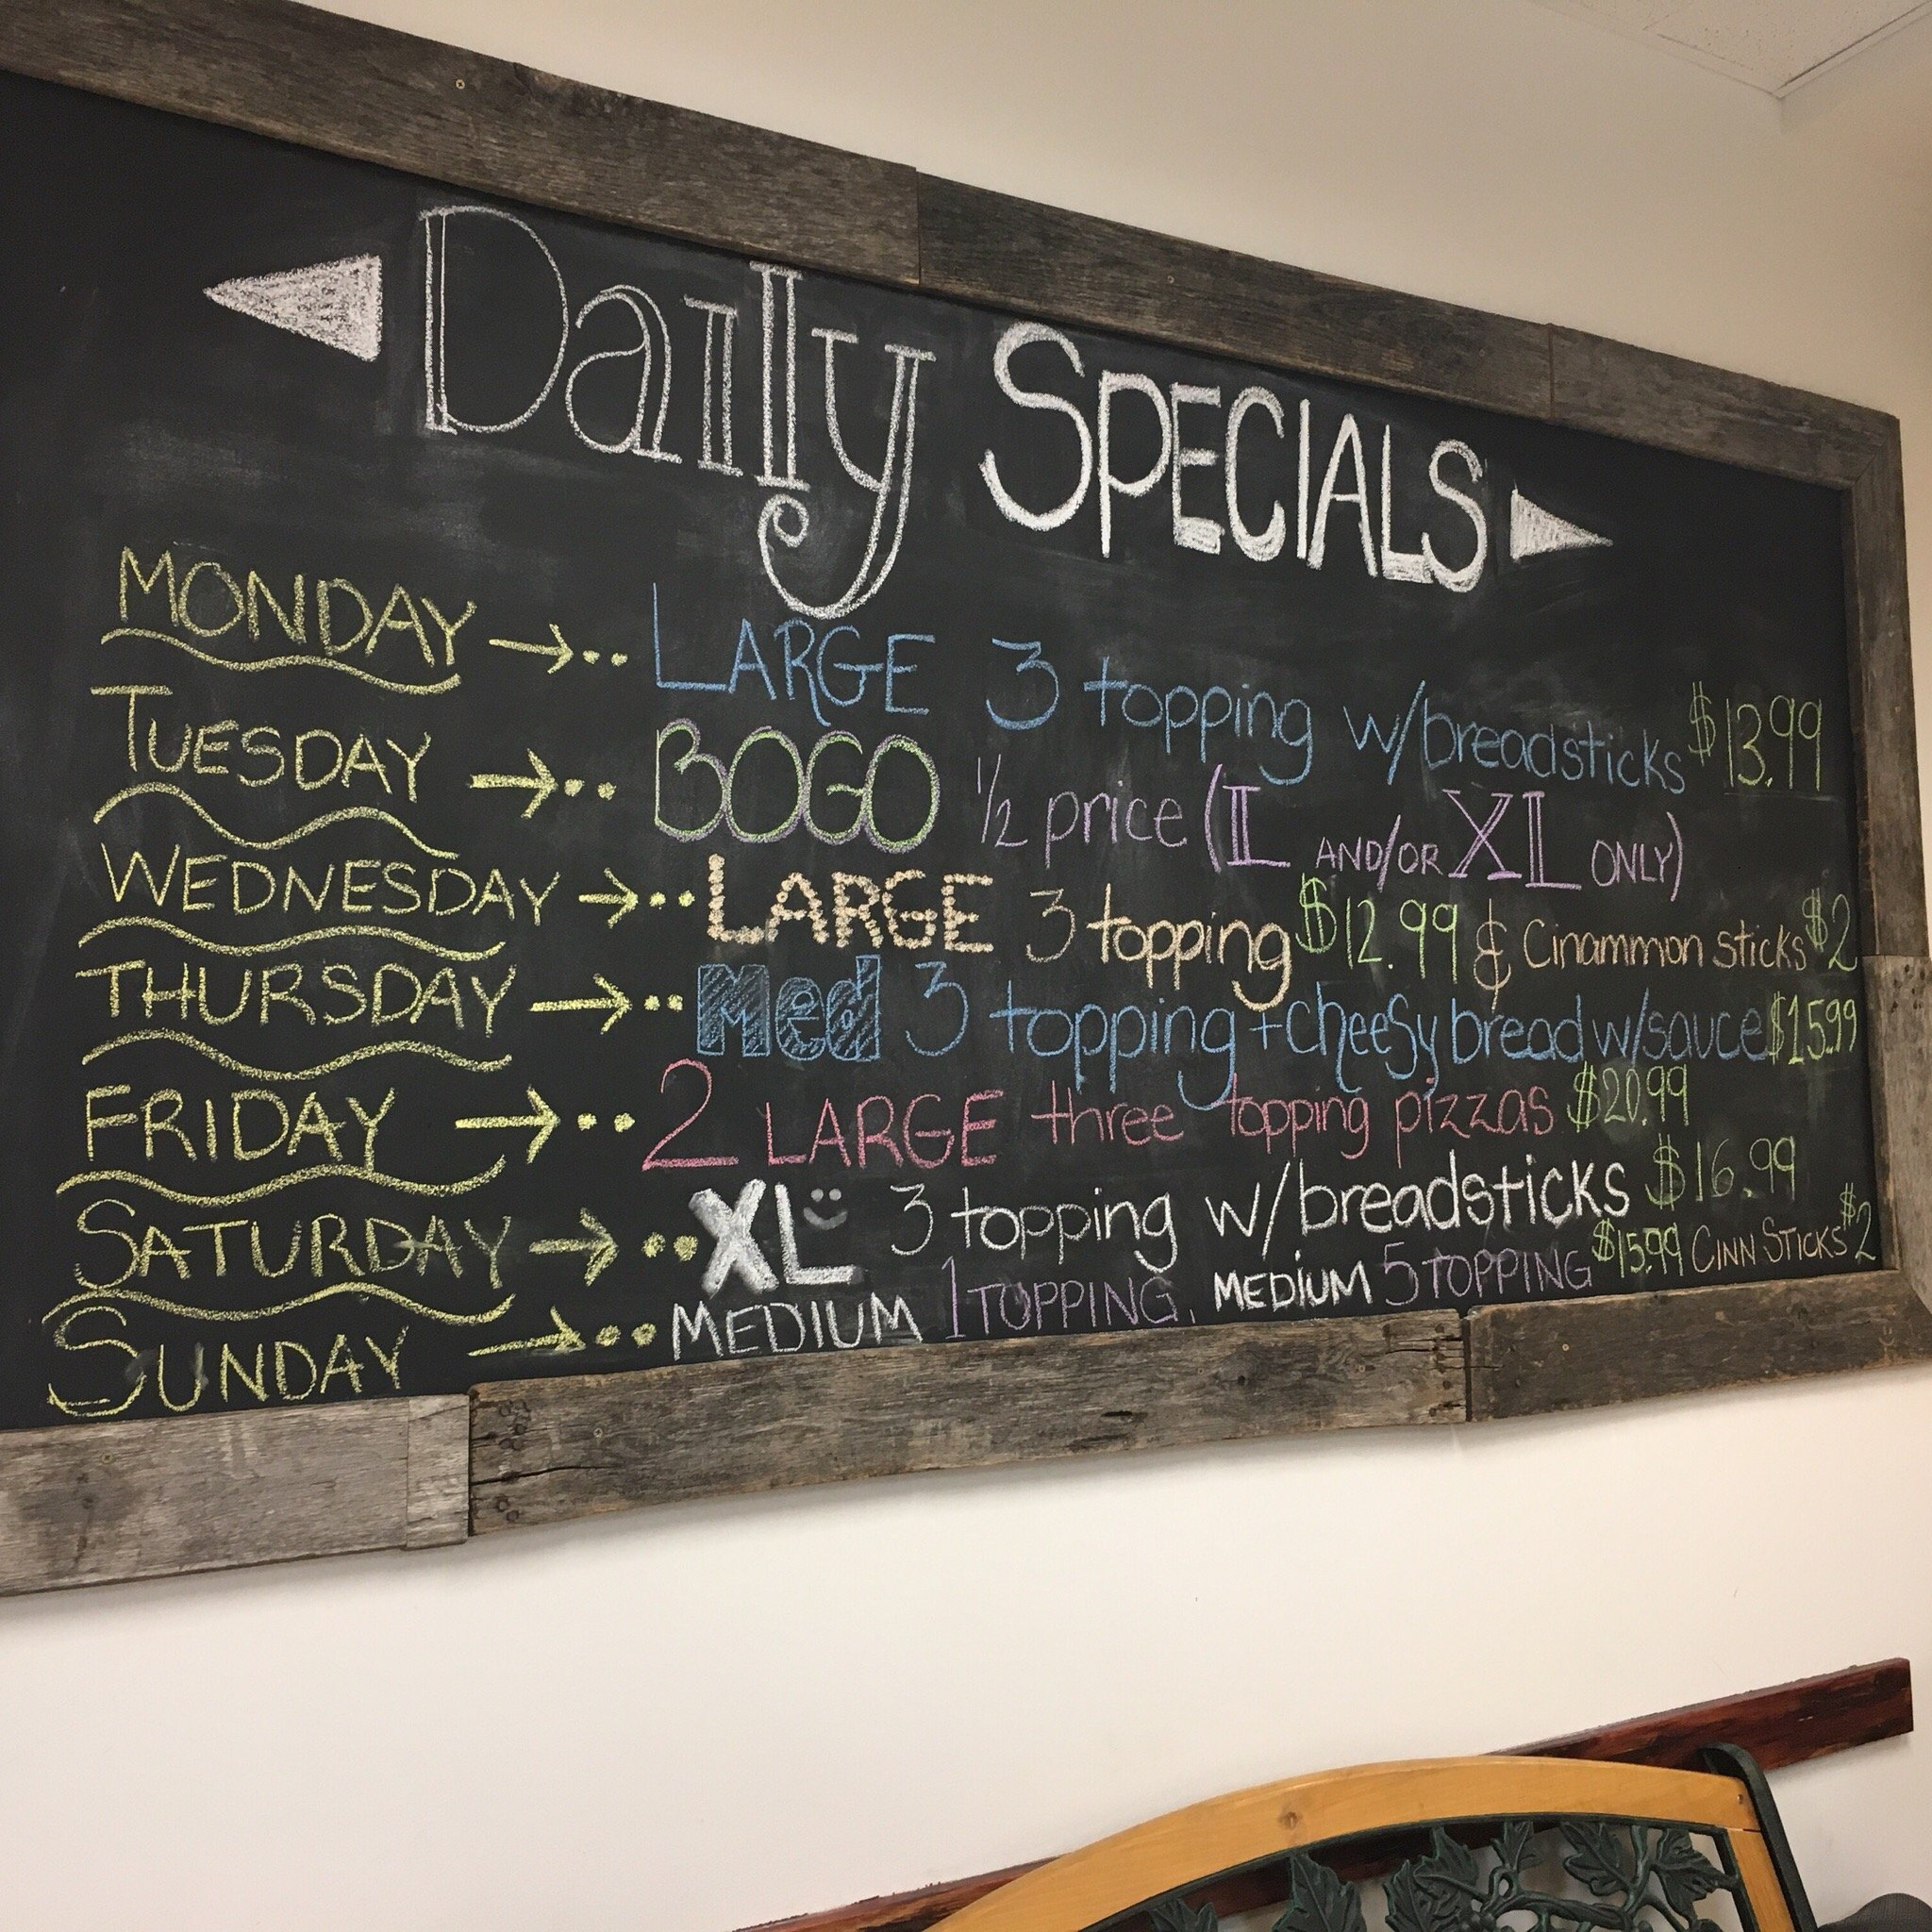 Daily SPECIALS
MONDAY → .. LARGE 3 topping w/breadsticks $13.99
TUESDAY → .. BOGO 1/2 price (L AND/OR XL ONLY)
WEDNESDAY → .. LARGE 3 topping $12.99 & Cinammon sticks $2
THURSDAY → .. Med 3 topping + cheesy bread w/sauce $15.99
FRIDAY → .. 2 LARGE three topping pizzas $20.99
SATURDAY → .. XL 3 topping w/breadsticks $16.99
SUNDAY → .. MEDIUM 1 TOPPING, MEDIUM 5 TOPPING $15.99 CINN STICKS $2